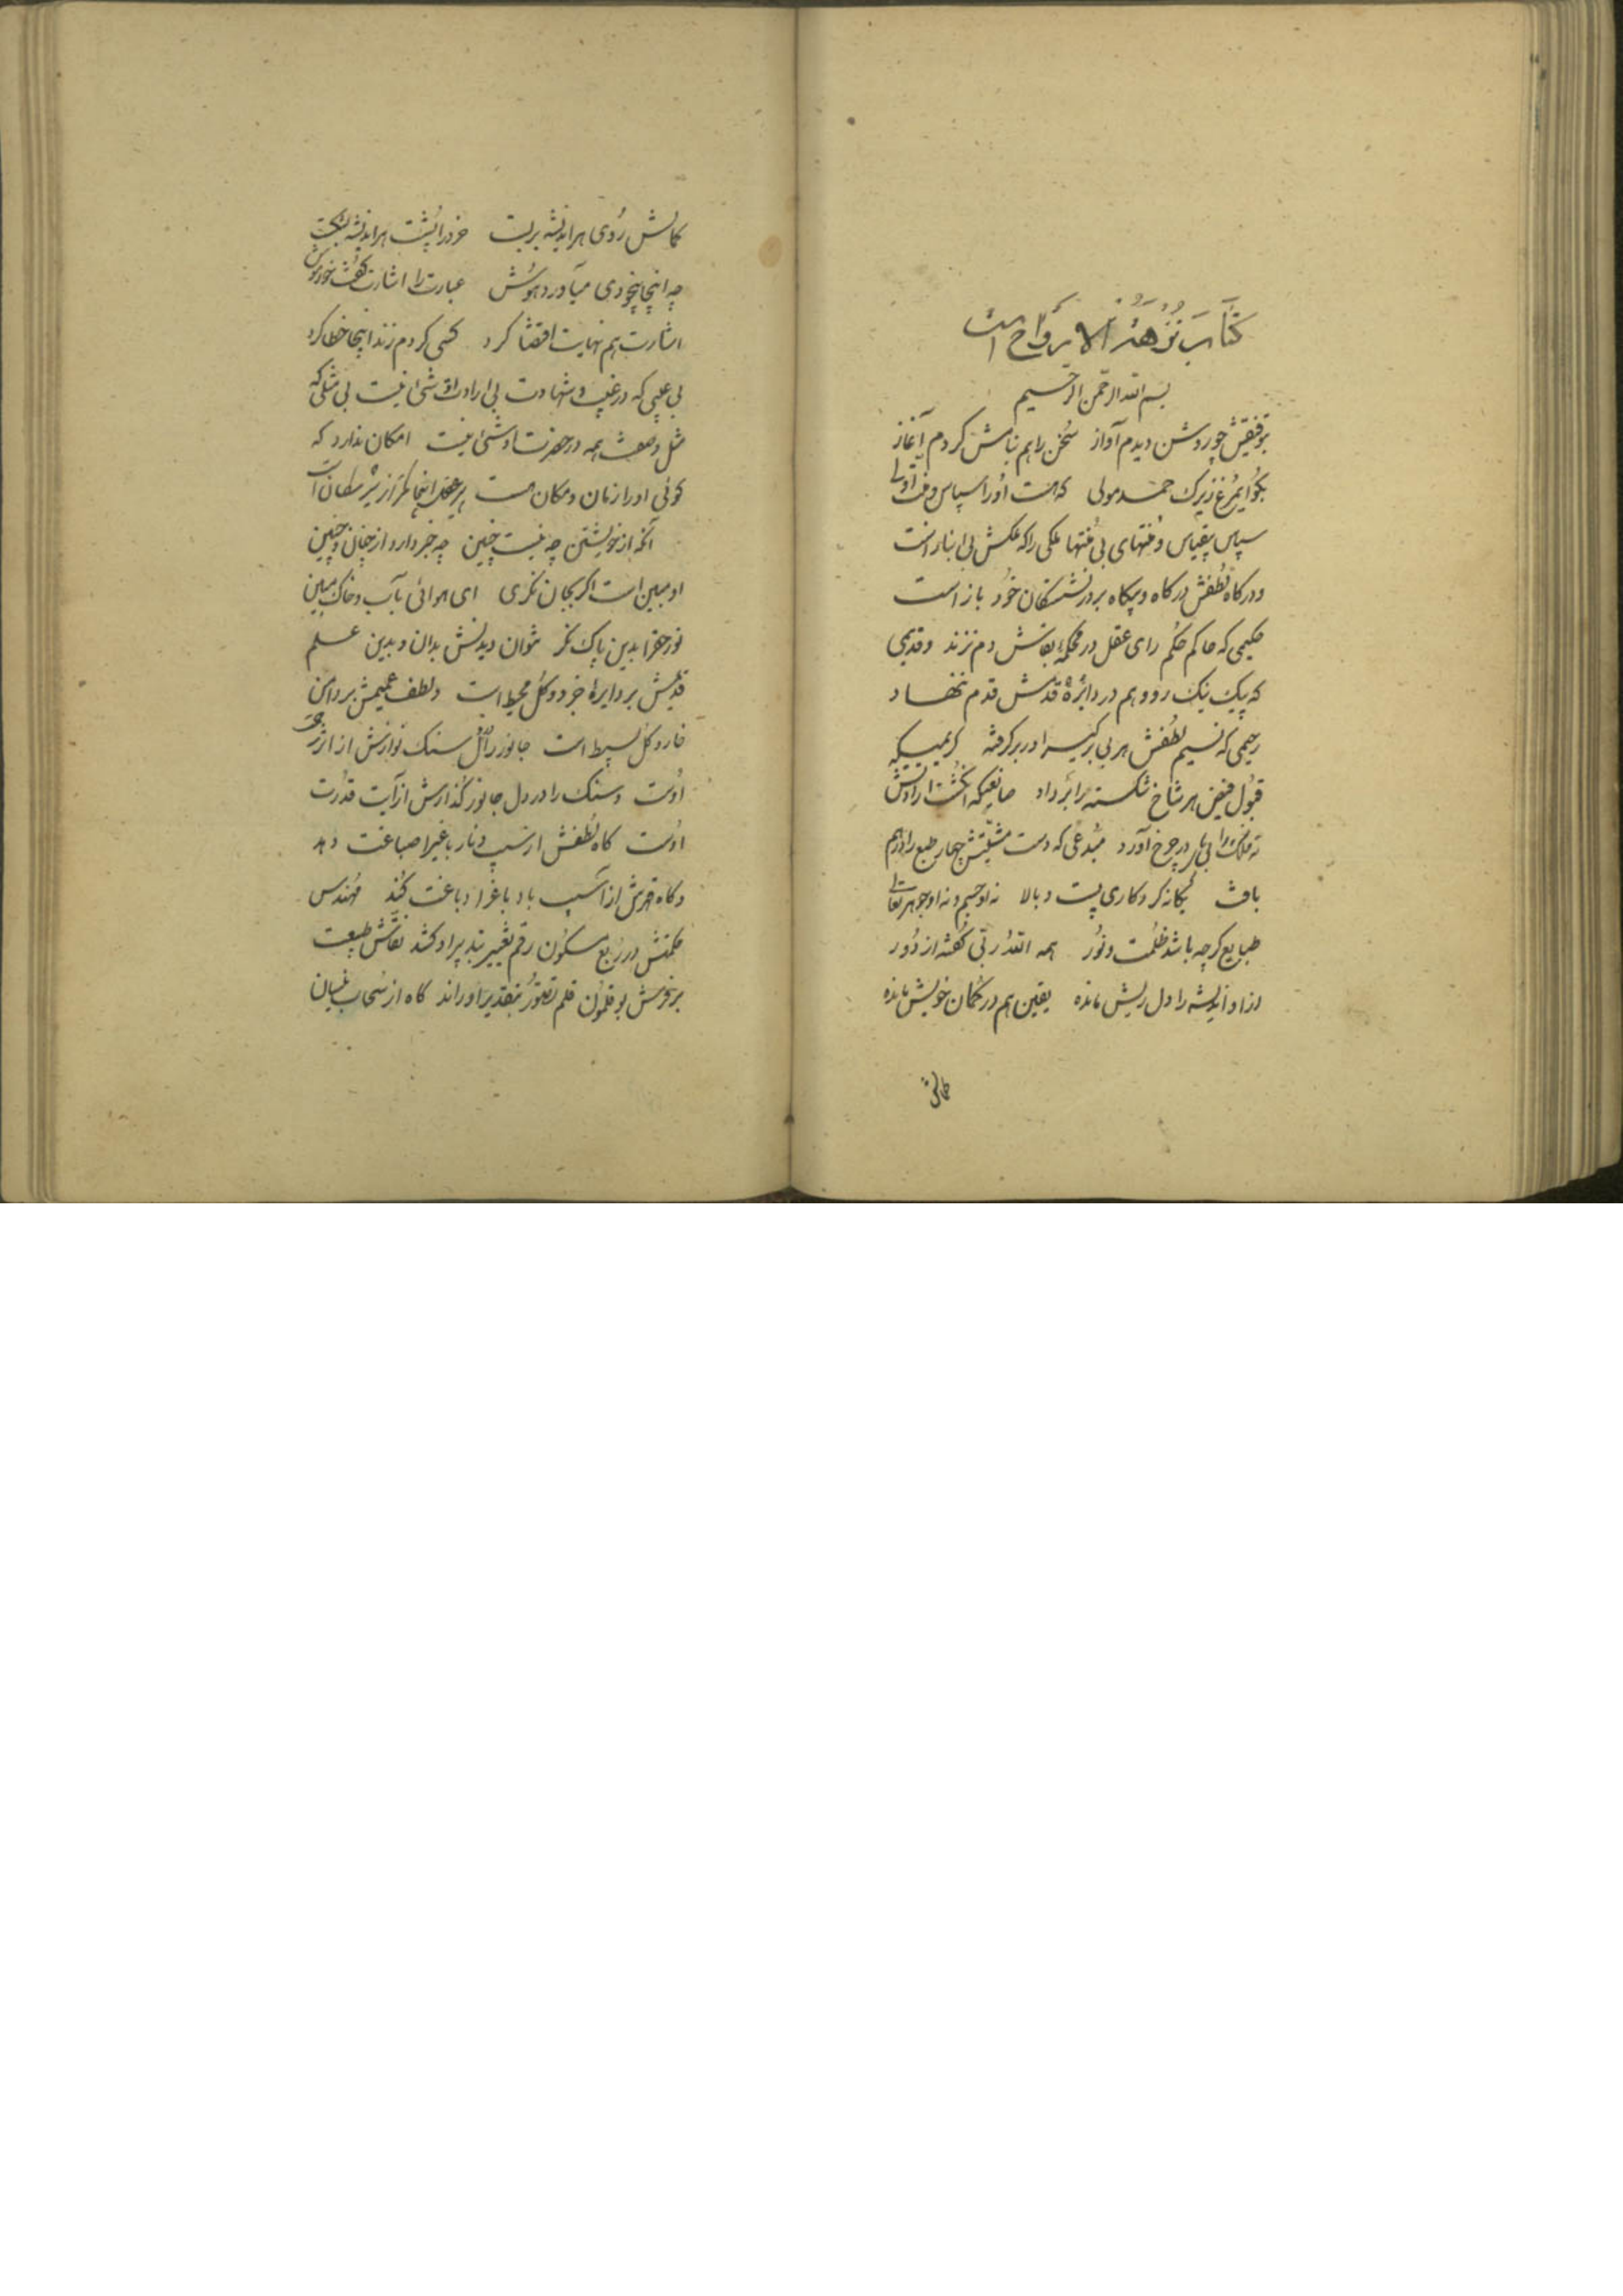 کتاب نزهة الارواح است
بسم الله الرحمن الرحیم
بتوفیقش چو روشن دیدم آواز سخن را هم بنامش کردم آغاز
بگو ایمرغ زیرک حمد مولی که هست او را سپاس و منت اولی
سپاس بیقیاس و منتهای بی منتها ملکی را که ملکش بی انباز است
و درگاه لطفش در گاه و بیگاه بر درنشستگان خود باز است
حکیمی که حاکم حکم رای عقل در محکمه بقاش دم نزند و قدیمی
که پیک نیک رو وهم در دائره قدمش قدم ننهاد
رحیمی که نسیم لطفش هر بی برگیرا در بر گرفته کریمیکه
قبول فیض هر شاخ شکسته را بر داد صانعیکه انگشت ارادتش
نه فلک را بی بار در چرخ آورد مبدعی که دست مشیتش چهار طبع را درهم
بافت یگانه کردگاری پست و بالا نه او جسم و نه او جوهر تعالی
طبایع گرچه باشد ظلمت و نور همه الله ربی گفته از دور
ازو اندیشه را دل ریش مانده یقین هم در گمان خویش مانده
کمالش
کمالش روی هر اندیشه بربست خرد را پشت هر اندیشه بشکست
چه اینجا بیخودی میآورد هوش عبارت را اشارت گفت خاموش
اشارت هم نهایت اقتضا کرد کسی کو دم زند اینجا خطا کرد
بی عیبی که در غیب و شهادت بی ارادت او شیء نیست بی مثلی که
مثل وصفت همه در حضرت او شیء نیست امکان ندارد که
گوئی او را زمان و مکان هست پیر عقل اینجا کمتر از شیر طفلان است
آنکه از خویشتن چه نیست چنین چه خبر دارد از چنان و چنین
او مبین است اگر بجان نگری ای هوائی بآب و خاک مبین
نور حق را بدین پاک نگر نتوان دیدنش بدان و بدین علم
قدیمش بر دایره جزو و کل محیط است و لطف عمیمش بر دامن
خار و گل بسیط است جانور در دل سنگ نوازش از اثر جود
اوست و سنگ را در دل جانور گدازش از آیت قدرت
اوست گاه لطفش از سیب دینار باغیرا صباغت دهد
و گاه قهرش از آسیب باد باغرا دباغت کند مهندس
حکمتش در ربع مسکون رقم تغییر بتدبیر او کشد نقاش طبیعت
بر فرش بوقلمون قلم تصور بتقدیر او راند گاه از سحاب نیسان